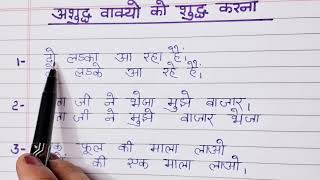 अशुद्ध वाक्यो को शुद्ध करना
1- दो लडका आ रहा हैं.
लडके आ रहे हैं.
2- जी ने भेजा मुझे बाजार.
जी ने मुझे बाजार भेजा
3- फूल की माला लाओ
की एक माला लाओ.